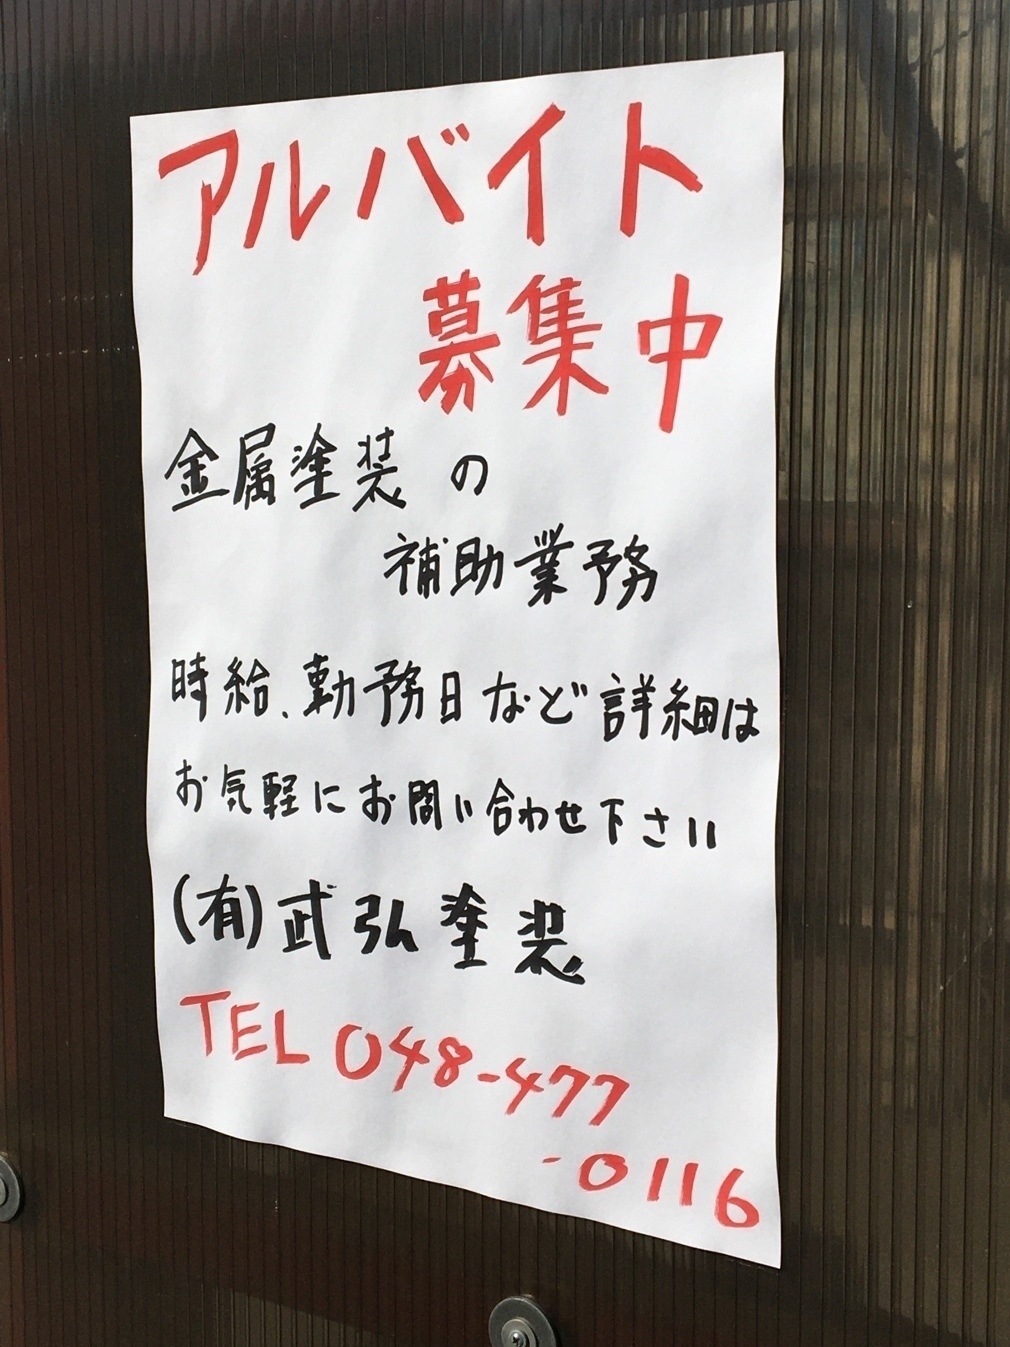 アルバイト
募集中
金属塗装の
補助業務
時給、勤務日など詳細は
お気軽にお問い合わせ下さい
(有)武弘塗装
TEL 048-477
-0116